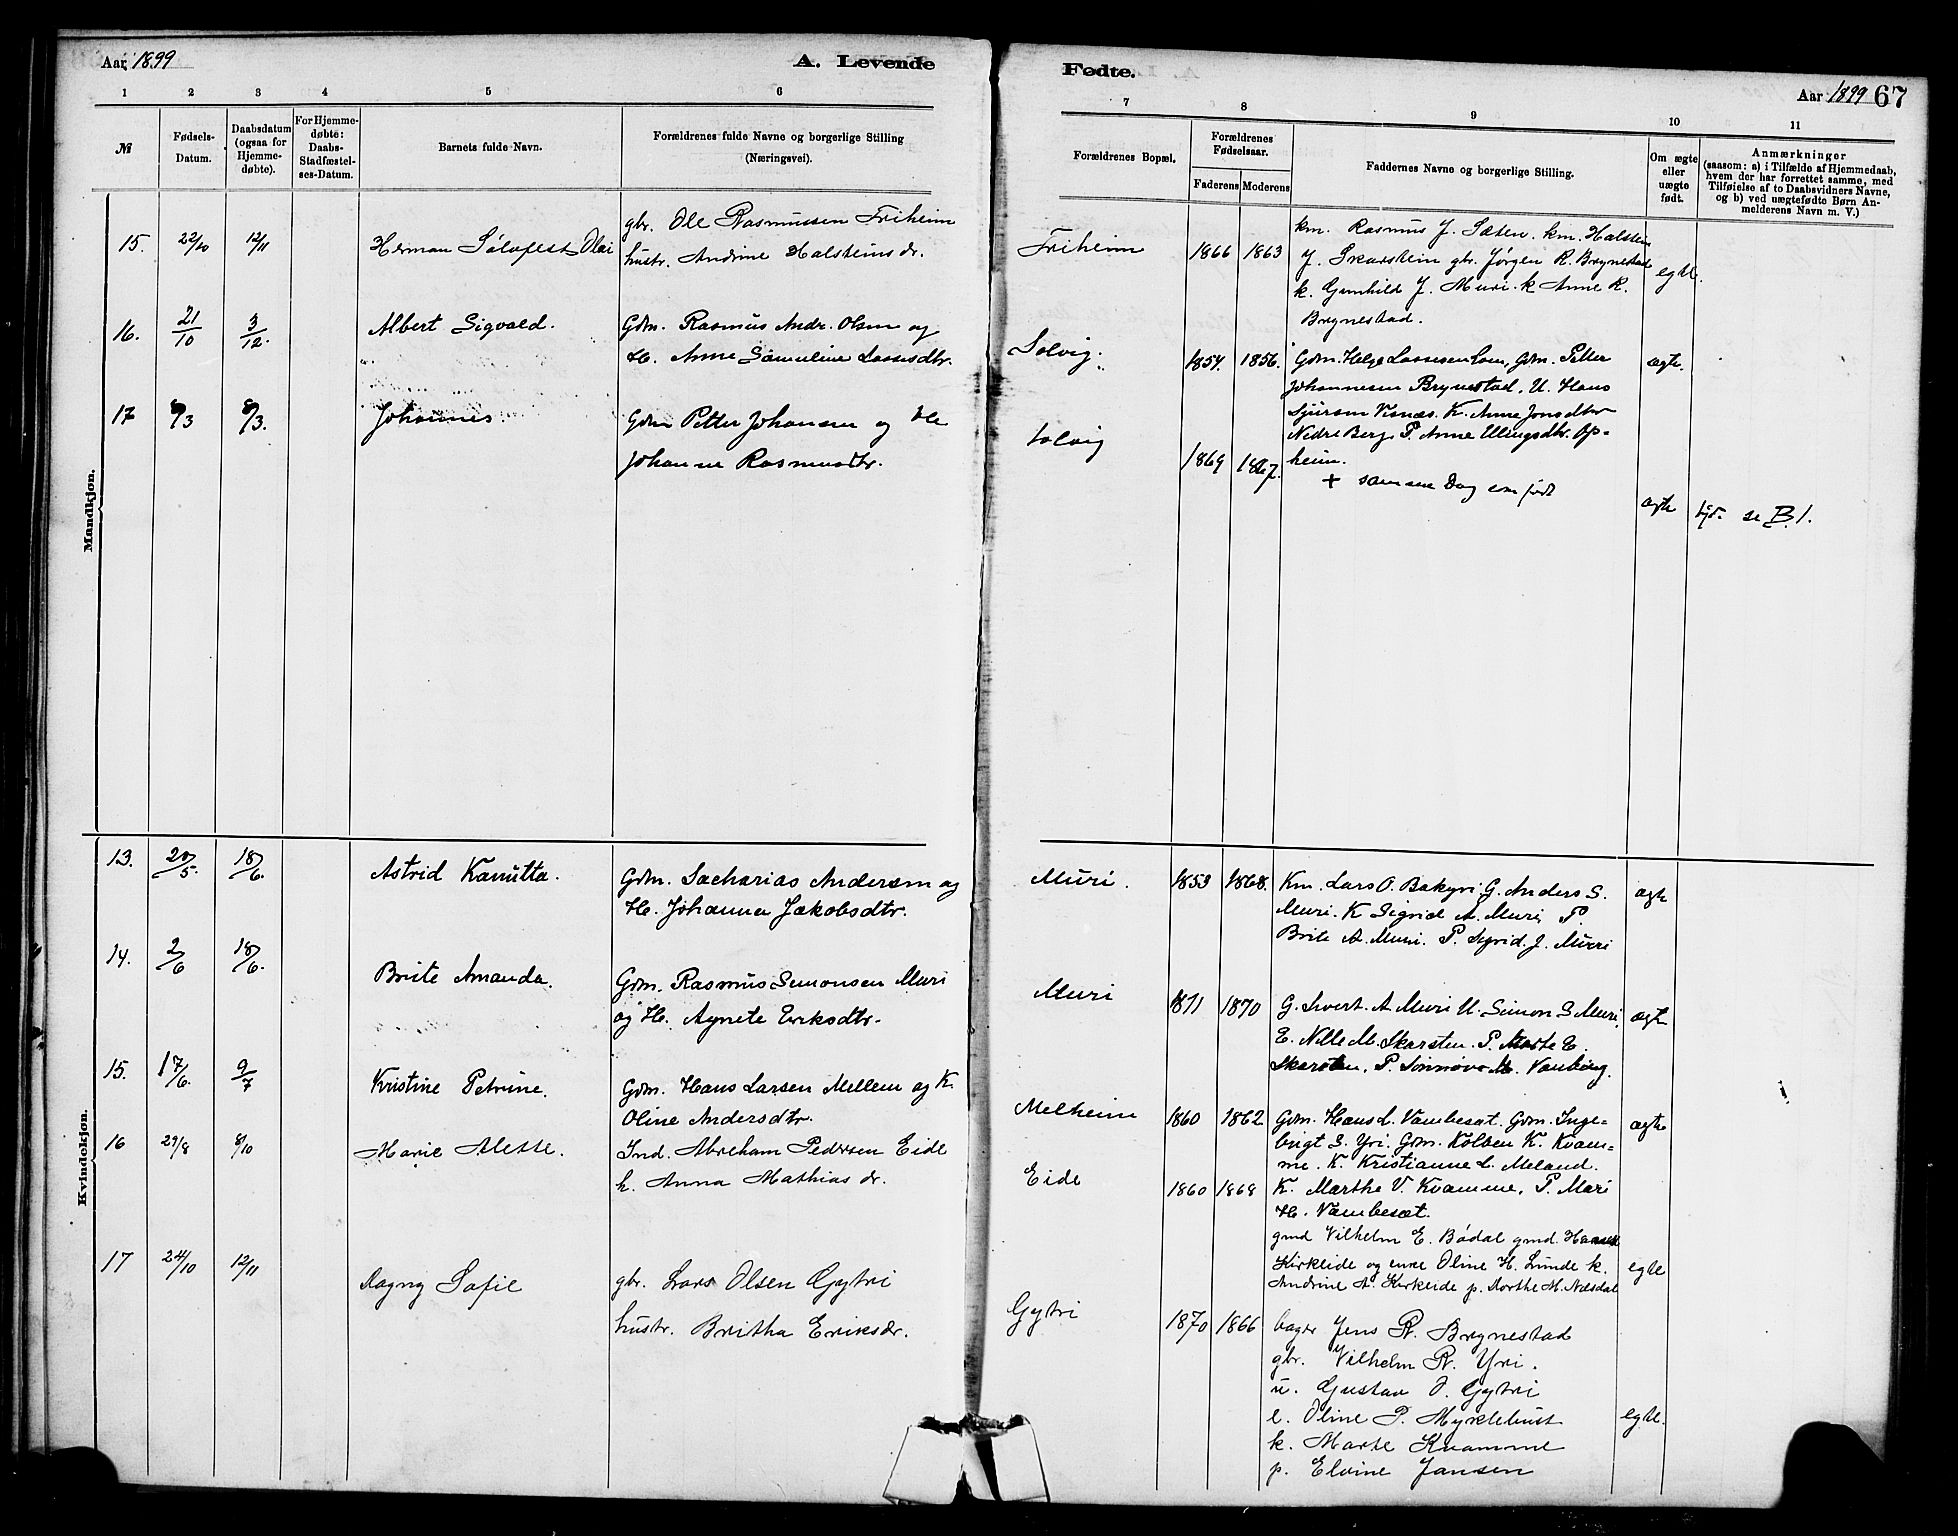 Aar 1899
A. Levende
Fødte.
Aar 1899 67
1 2 3 4 5 6
7 8 9 10 11
№
Fødsels-
Datum.
Daabsdatum
(ogsaa for
Hjemme-
døbte).
For Hjemme-
døbte:
Daabs-
Stadfæstel-
ses-Datum.
Barnets fulde Navn.
Forældrenes fulde Navne og borgerlige Stilling
(Næringsvei).
Forældrenes Bopæl.
Forældrenes
Fødselsaar.
Faderens Moderens
Faddernes Navne og borgerlige Stilling.
Om ægte
eller
uægte
født.
Anmærkninger
(saasom: a) i Tilfælde af Hjemmedaab,
hvem der har forrettet samme, med
Tilføielse af to Daabsvidners Navne,
og b) ved uægtefødte Børn An-
melderens Navn m. V.)
Mandkjøn.
15. 22/10 12/11 Herman Sølvfest Olai
gbr. Ole Rasmussen Friheim
hustr. Andrine Halsteinsdr.
Friheim 1866 1863
km. Rasmus J. Sæten. km. Halstein
J. Skarstein gbr. Jørgen R. Brynestad
k. Gunhild J. Muri. k Anne R.
Brynestad.
egte.
16. 21/10 3/12. Albert Sigvald.
Gdm. Rasmus Andr. Olsen og
H. Anne Samueline Lassesdtr.
Solvig. 1854. 1856.
Gdm. Helge Lassesen Loen, Gdm. Petter
Johannesen Brynestad. U. Hans
Sjursen Visnæs. K. Anne Jonsdtr
Nedre Berg. P. Anne Ellingsdtr. Op-
heim.
ægte.
17 8/3 8/3. Johannes.
Gdm Petter Johansen og He
Johanne Rasmusdtr.
Solvig 1869 1867.
+ samme Dag som født
ægte se B 1.
Kvindekjøn.
13. 20/5. 18/6. Astrid Kanutta.
Gdm. Sacharias Andersen og
H. Johanna Jakobsdtr.
Muri. 1853 1868.
Km. Lars O. Bakyri G. Anders S.
Muri. K Sigrid A. Muri P.
Brite A. Muri. P. Sigrid. J. Muri
ægte
14. 2/6 18/6. Brite Amanda.
Gdm. Rasmus Simonsen Muri
og H. Agnete Eriksdtr.
Muri 1871 1870
G. Sivert. A Muri U. Simon S Muri,
E. Nille M. Skarsten. P. Marte E.
Skarsten. P. Sønnøve M.
ægte
15. 17/6. 9/7 Kristine Petrine.
Gdm. Hans Larsen Mellem og K.
Oline Andersdtr.
Melheim 1860 1862
Gdm. Hans L. Vambeset. Gdm. Inge-
brigt S. Yri. Gdm. Kolben K. Kvam-
me. K. Kristianne L. Meland.
K. Marthe V. Kvamme. P. Mari
H. Vambesæt.
ægte
16 29/8 8/10 Marie Alette.
Ind. Abreham Pedersen Eide
h. Anna Mathiasdr.
Eide 1860 1868
gmd Vilhelm E. Bødal gmd. Hans
Kirkeide og enke Oline H. Lunde k.
Andrine A. Kirkeide p. Dorthe M. Nesdal
egte
17 24/10 12/11 Dagny Sofie
gbr. Lars Olsen Gytri
hustr. Britha Eriksdr.
Gytri 1870 1866
bager Jens R. Brynestad
gbr. Vilhelm R. Yri.
u. Gustav O. Gytri
e. Oline P. Myklebust
k. Marte Kvamme
p. Elvine Jansen
egte.